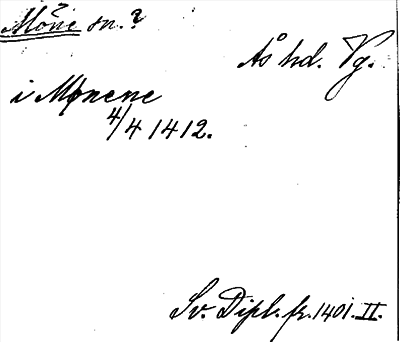 Mǒne sn.?
Ås hd. Vg.
i Mønene
4/4 1412.
Sv. Dipl. fr. 1401. II.